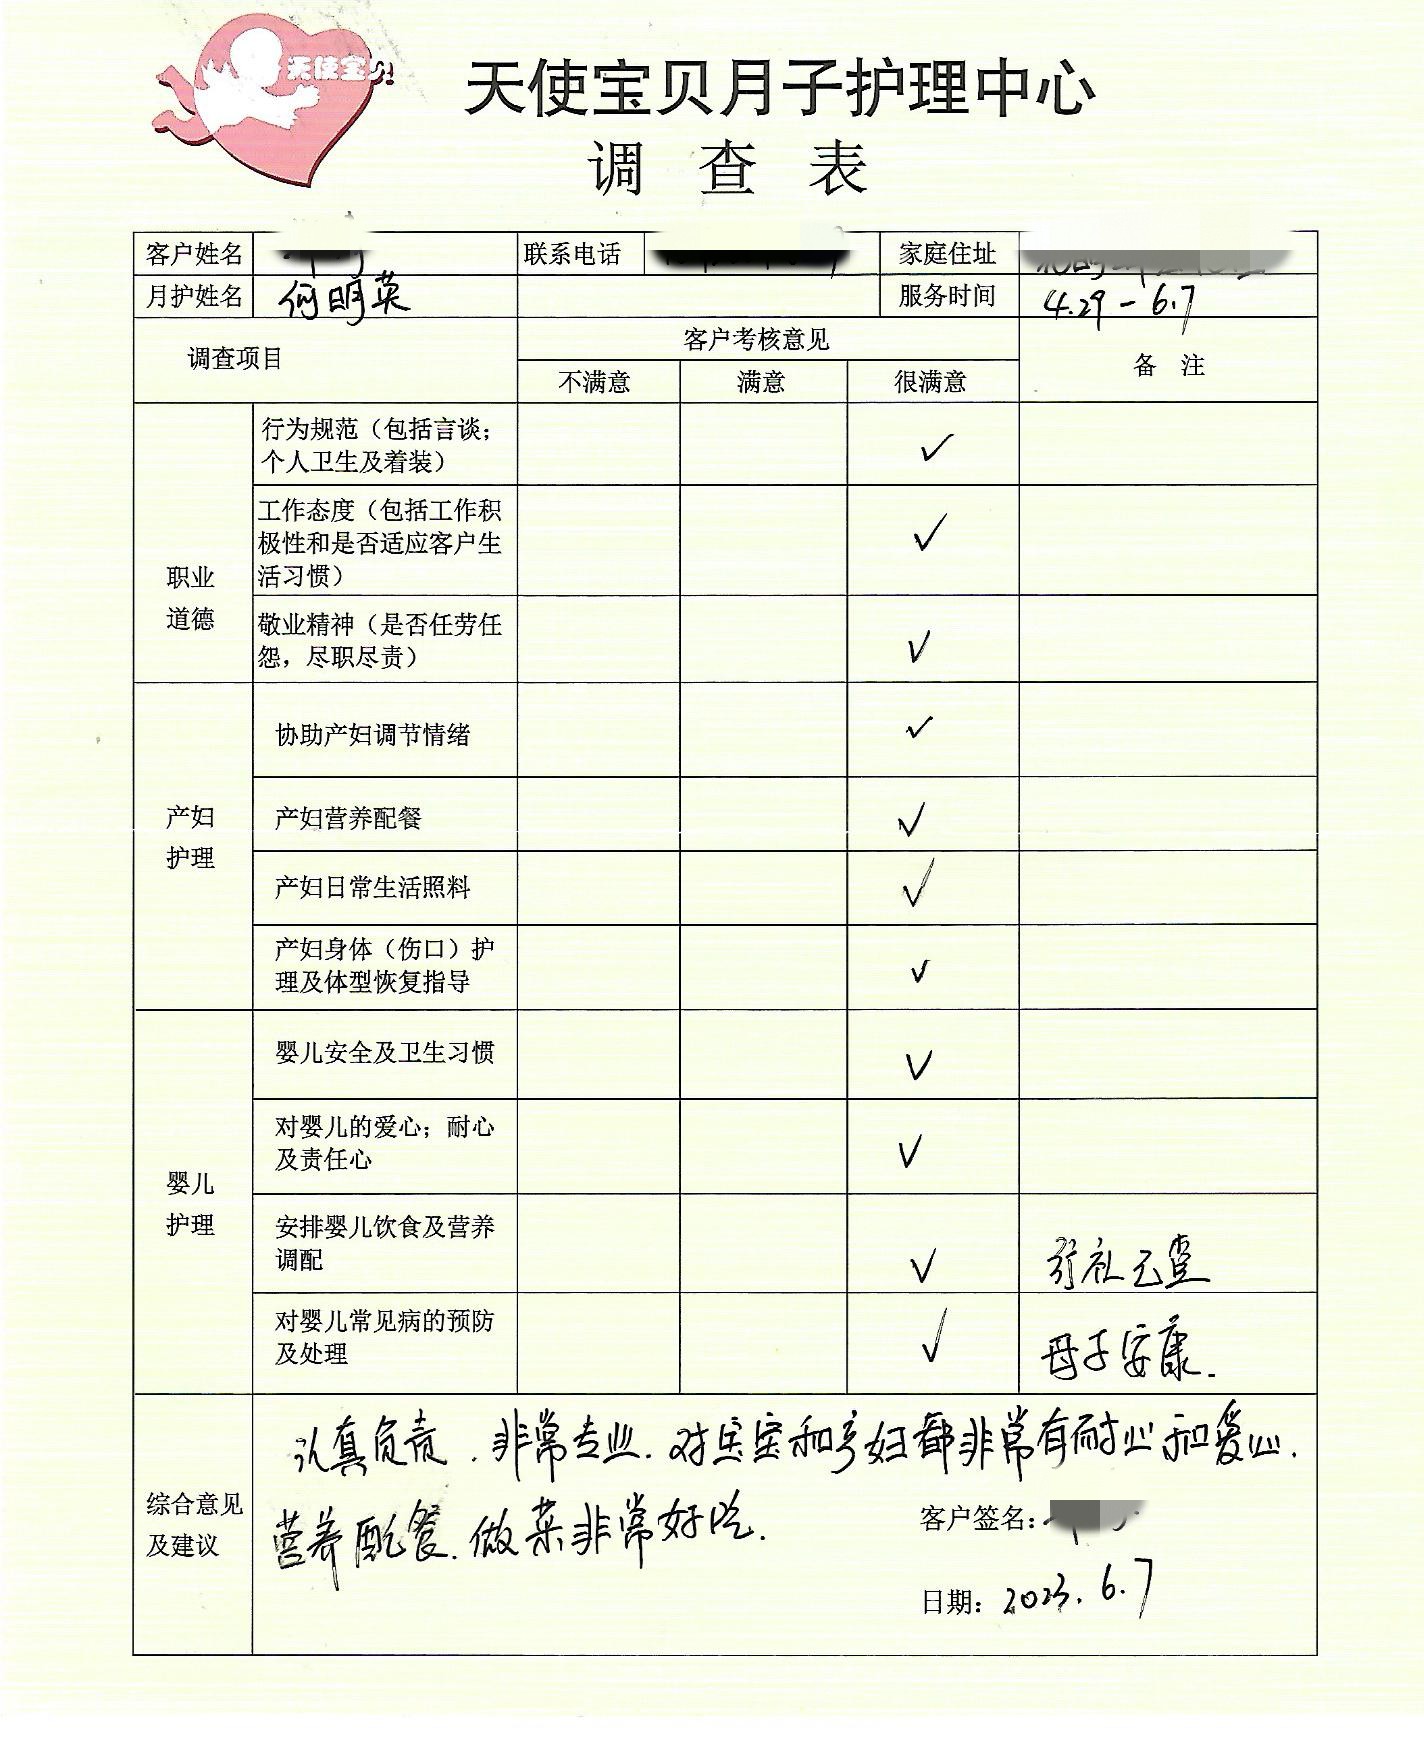 天使宝贝
天使宝贝月子护理中心
调 查 表
客户姓名 联系电话 家庭住址
月护姓名 何明英 服务时间 4.29-6.7
调查项目 客户考核意见 备 注
不满意 满意 很满意
职业
道德
行为规范（包括言谈；
个人卫生及着装） ✓
工作态度（包括工作积
极性和是否适应客户生
活习惯） ✓
敬业精神（是否任劳任
怨，尽职尽责） ✓
产妇
护理
协助产妇调节情绪 ✓
产妇营养配餐 ✓
产妇日常生活照料 ✓
产妇身体（伤口）护
理及体型恢复指导 ✓
婴儿
护理
婴儿安全及卫生习惯 ✓
对婴儿的爱心；耐心
及责任心 ✓
安排婴儿饮食及营养
调配 ✓
对婴儿常见病的预防
及处理 ✓ 母子安康.
综合意见
及建议
认真负责.非常专业.对宝宝和产妇都非常有耐心和爱心.
营养配餐.做菜非常好吃.
客户签名:
日期: 2023.6.7